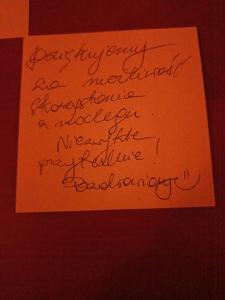 Dziękujemy
za możliwość
skorzystania
z noclegu.
Niezwykle
przytulnie!
Pozdrawiamy :)